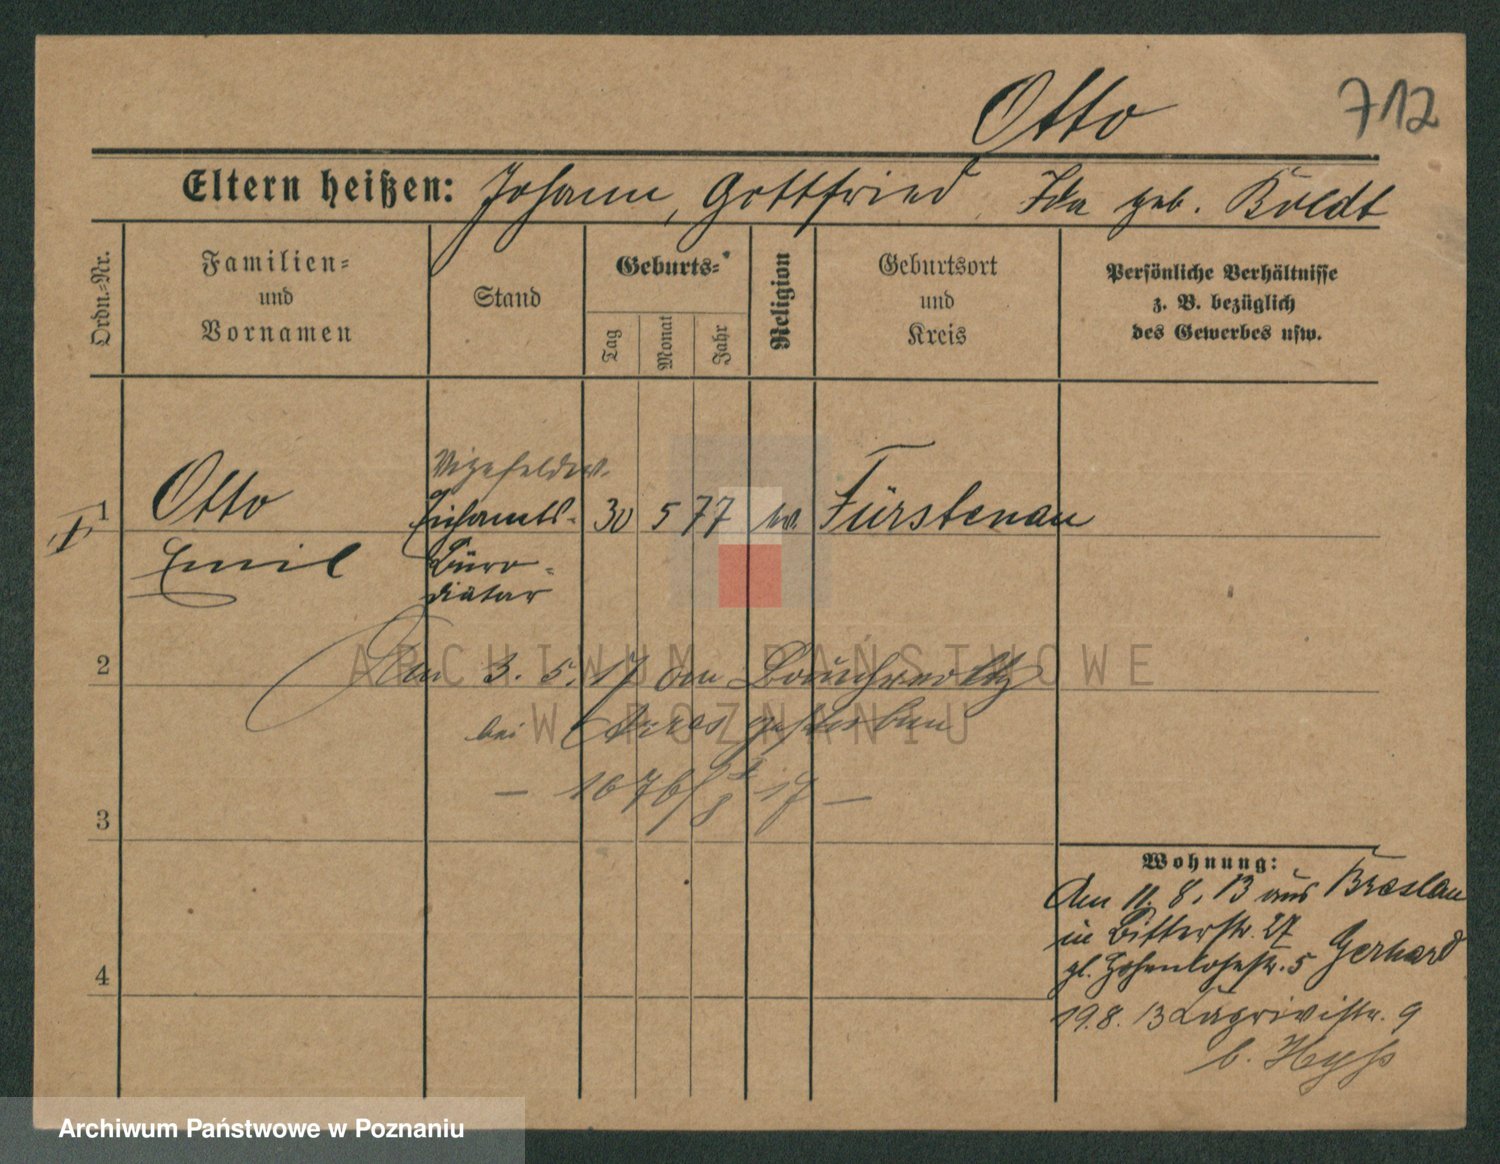 Otto 712
Eltern heißen: Johann, Gottfried, Ida geb. Boldt
Ordn.-Nr.
Familien-
und
Vornamen
Stand
Geburts-*
Tag
Monat
Jahr
Religion
Geburtsort
und
Kreis
Persönliche Verhältnisse
z. B. bezüglich
des Gewerbes usw.
Vizefeldw.
1 Otto Eichamts- 30 5 77 ev. Fürstenau
Emil Büro-
diätar
2 Am 3. 5. 17 am
bei Arras gestorben
3
4
Wohnung:
Am 11. 8. 13 aus Breslau
in Bitterstr. 27
gl. Hohenlohestr. 5 Gerhard
19. 8. 13 9
b.
ARCHIWUM PAŃSTWOWE
W POZNANIU
Archiwum Państwowe w Poznaniu